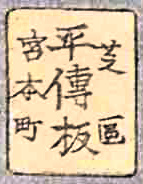 芝區
平傳板
宮本町